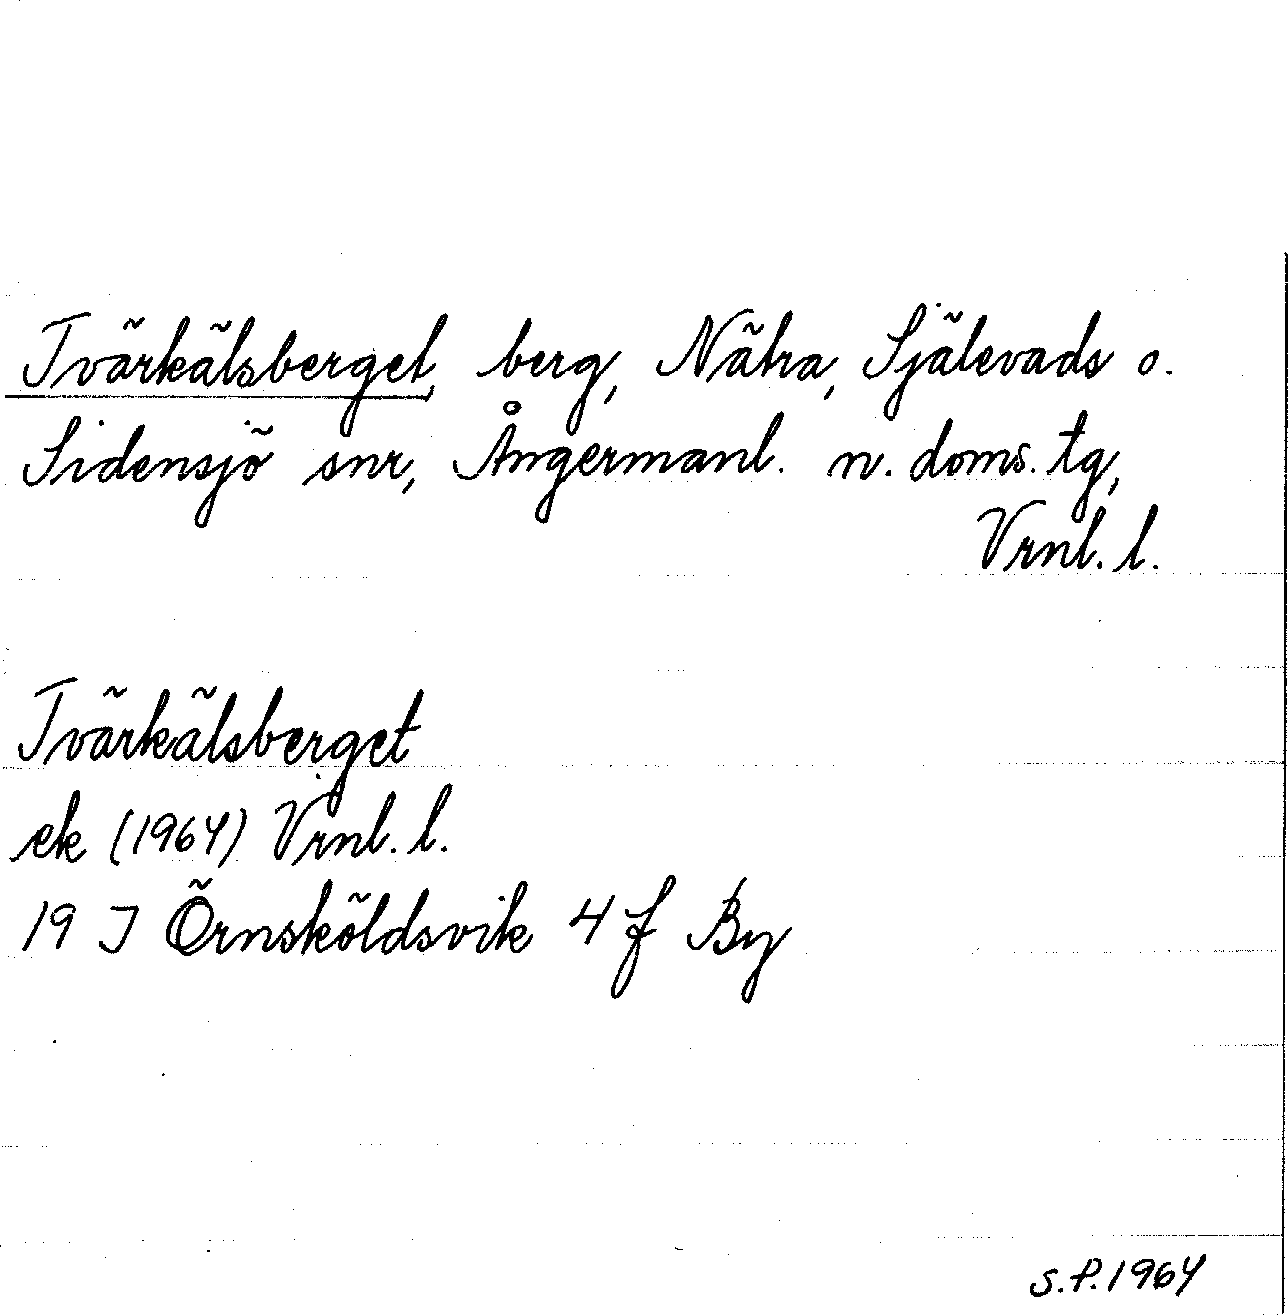 Tvärkälsberget, berg, Nätra, Själevads o.
Sidensjö snr, Ångermanl. n. doms. tg,
Vrnl. l.
Tvärkälsberget
ek (1964) Vrnl. l.
19 J Örnsköldsvik 4 f By
S.P. 1964